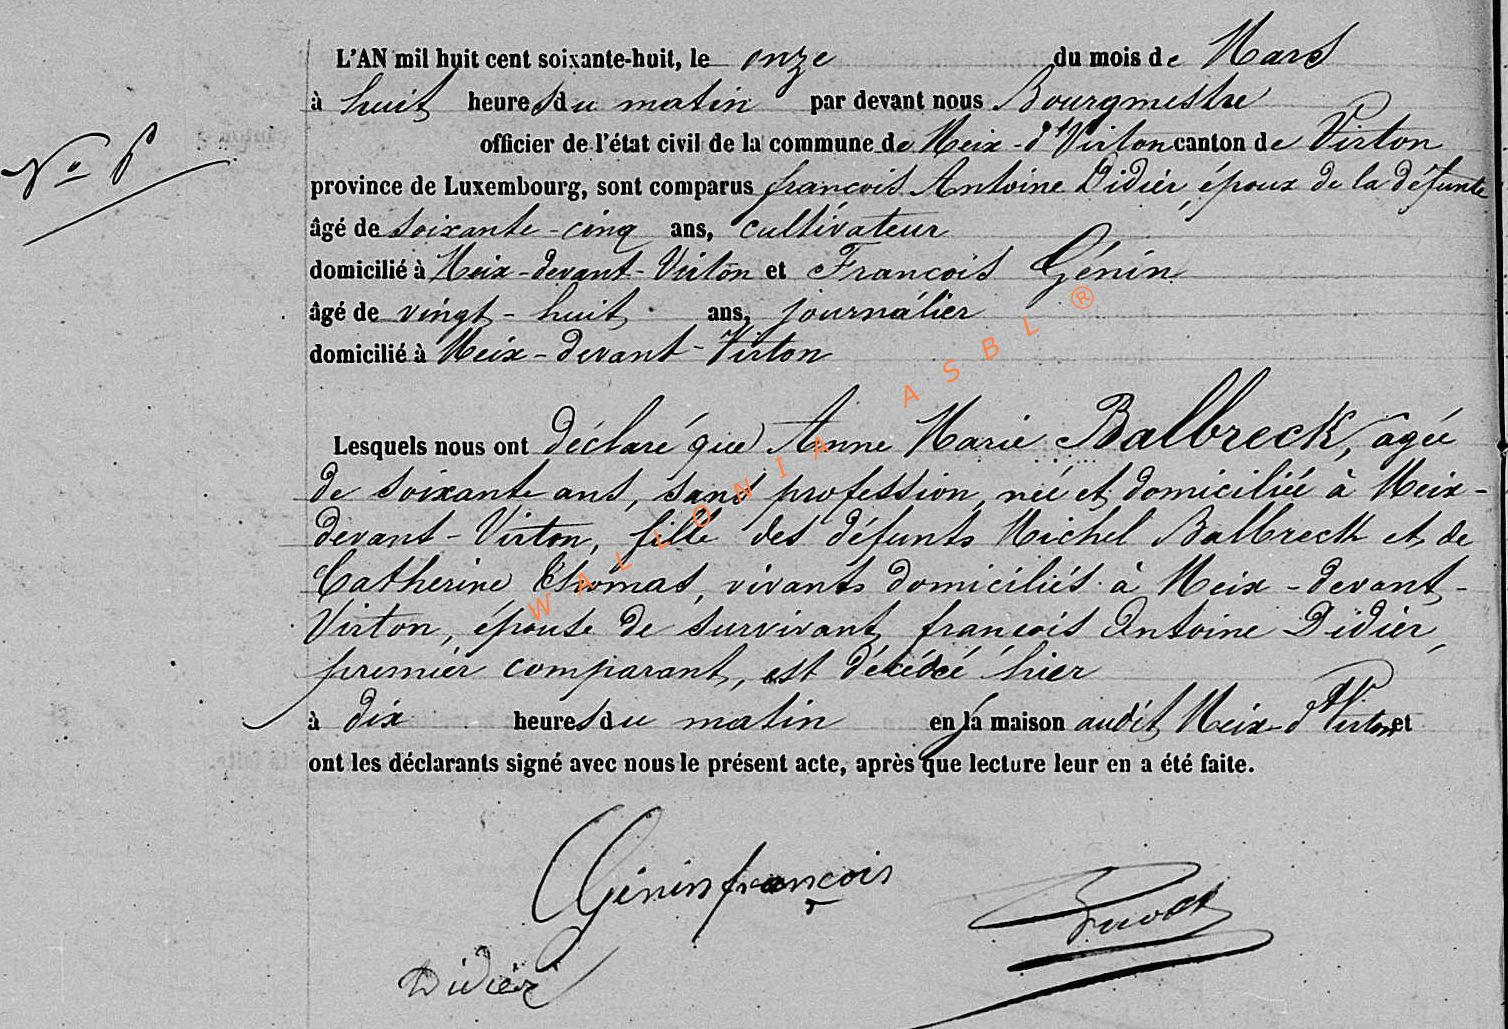 L'AN mil huit cent soixante-huit, le onze du mois de Mars
à huit heures du matin par devant nous Bourgmestre
officier de l'état civil de la commune de Meix-dt Virton canton de Virton
N° 6
province de Luxembourg, sont comparus françois Antoine Didier, époux de la défunte
âgé de soixante-cinq ans, cultivateur
domicilié à Meix-devant-Virton et François Génin
âgé de vingt-huit ans, journalier
domicilié à Meix-devant-Virton
Lesquels nous ont déclaré que Anne Marie Balbreck, agée
de soixante ans, sans profession, née et domiciliée à Meix-
devant-Virton, fille des défunts Michel Balbreck et de
Catherine Thomas, vivants domiciliés à Meix-devant-
Virton, épouse de survivant françois Antoine Didier,
premier comparant, est décédée hier
à dix heures du matin en la maison audit Meix-dt Virton, et
ont les déclarants signé avec nous le présent acte, après que lecture leur en a été faite.
Génin françois
Didier
WALLONIA ASBL ®